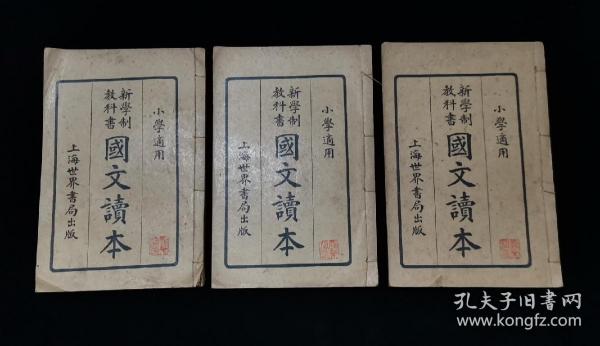 小學適用
新學制
教科書
國文讀本
上海世界書局出版
小學適用
新學制
教科書
國文讀本
上海世界書局出版
小學適用
新學制
教科書
國文讀本
上海世界書局出版
孔夫子旧书网
www.kongfz.com